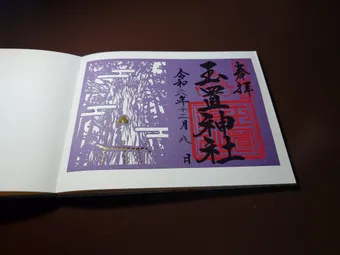 奉拝
玉置神社
令和六年十二月八日